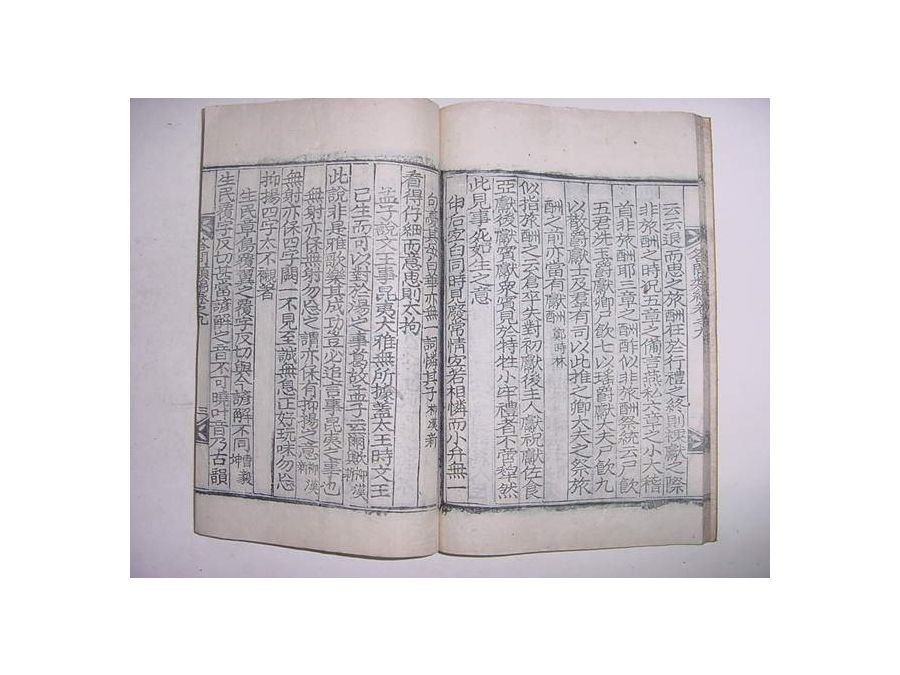 云云退而思之旅酬在於行禮之終則裸獻之際
非旅酬之時記五章之備言燕私六章之小大稽
首非旅酬耶三章之酬酢似非旅酬祭統云尸飮
五君洗玉爵獻卿尸飮七以瑤爵獻大夫尸飮九
以散爵獻士及羣有司以此推之卿大夫之祭旅
酬之前亦當有獻酬 鄭時林
似指旅酬之云倉卒失對初獻後主人獻祝獻佐食
亞獻後獻賓獻衆賓見於特牲小牢禮者不啻犂然
此見事死如生之意
申后宛白同時見廢常情宜若相憐而小弁無一
句憂其母白華亦無一詞憐其子 柳漢新
看得仔細而意思則太拘
孟子說文王事昆夷大雅無所據蓋太王時文王
已生而可以對於湯之事葛故孟子云爾歟 柳漢新
此說非是雅歌樂其成功豈必追言事昆夷之事也
無射亦保無射勿忘之謂亦保有抑揚之意 柳漢新
無射亦保四字闕一不見至誠無息正好玩味勿忘
抑揚四字太不襯著
生民章鳥覆翼之覆字反切與今諺解不同 曺毅坤
生民覆字反切甚當諺解之音不可曉叶音乃古韻